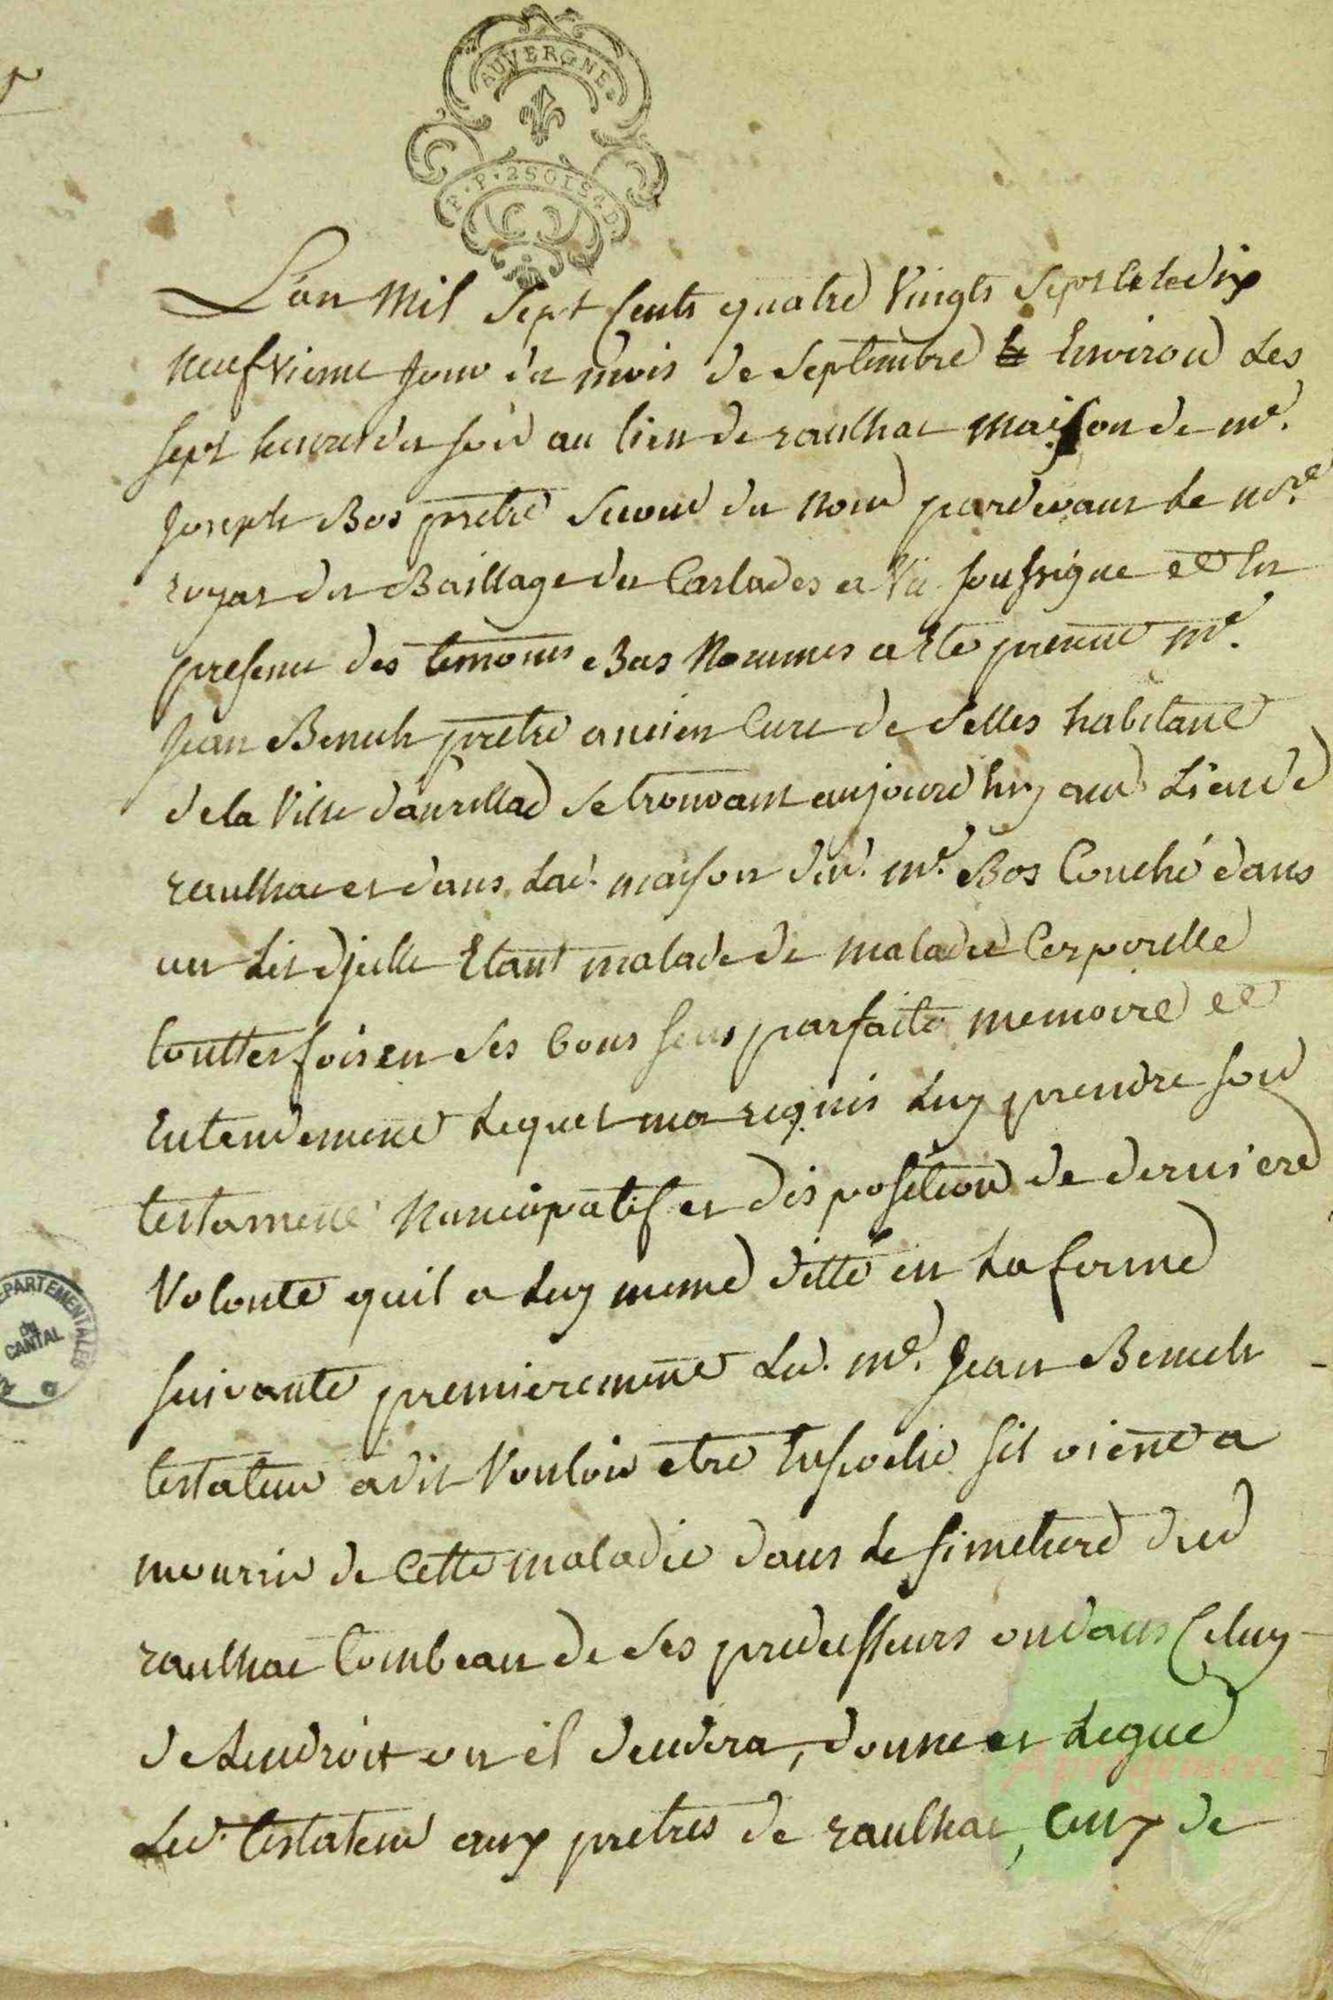 AUVERGNE.
P.P. 2 SOLS 4 D
L'an mil sept cents quatre vingts sept et le dix
neufvieme jour du mois de septembre environ les
sept heures du soir au lieu de raulhac maison de me.
joseph Bos pretre second du nom pardevant le nore.
royal du Baillage du Carlades a Vic soussigné et en
presence des temoins Bas nommes a ete present me.
jean Benech pretre ancien curé de selles habitant
de la ville daurillac se trouvant aujourdhuy au lieu de
raulhac et dans lad. maison dud. me. Bos couché dans
un lit djcelle etant malade de maladie corporelle
touttesfois en ses bons sens parfaite memoire et
entendement lequel ma requis luy prendre son
testament nuncupatif et disposition de derniere
volonté quil a luy meme ditté en la forme
suivante premierement led. me. jean Benech
testateur a dit vouloir etre enseveli sil vient a
mourir de cette maladie dans le simetiere dud
raulhac tombeau de ses predecesseurs ou dans celuy
de lendroit ou il deudera, donne et legue
led. testateur aux pretres de raulhac, ceux de
DEPARTEMENTALES
du
CANTAL
Aprogemere